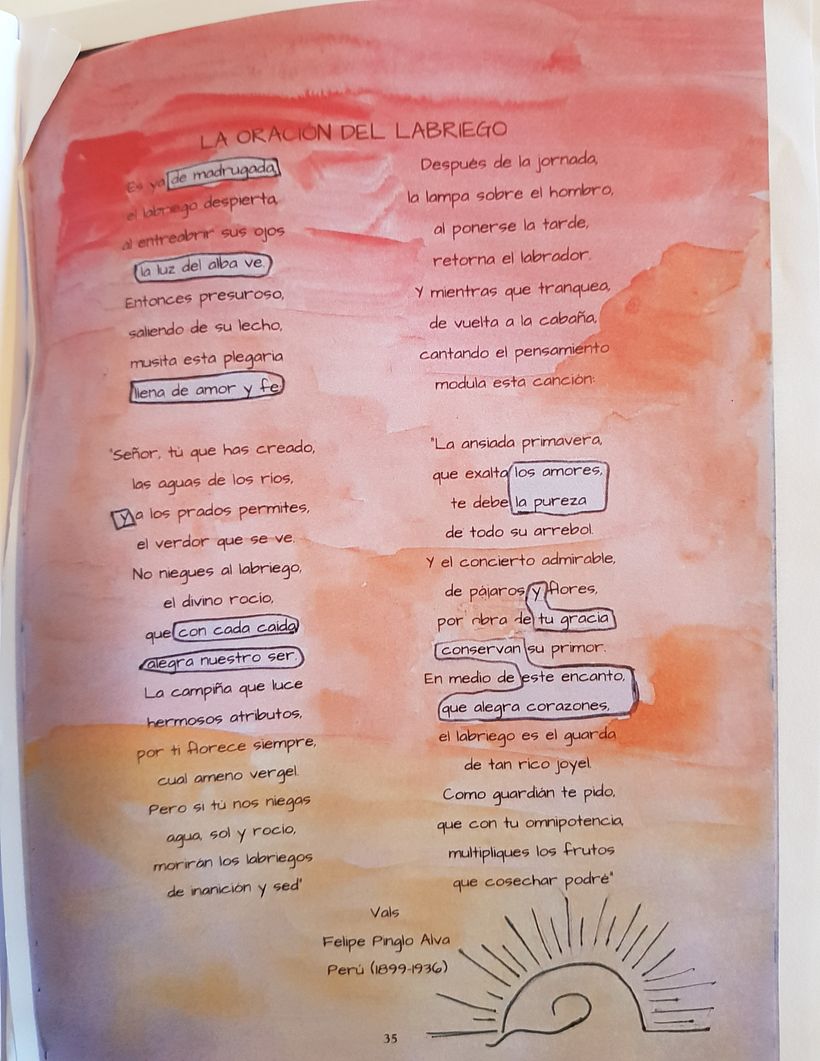 LA ORACIÓN DEL LABRIEGO
Es ya de madrugada,
el labriego despierta,
al entreabrir sus ojos
la luz del alba ve.
Entonces presuroso,
saliendo de su lecho,
musita esta plegaria
llena de amor y fe:
"Señor, tú que has creado,
las aguas de los ríos,
y a los prados permites,
el verdor que se ve.
No niegues al labriego,
el divino rocío,
que con cada caída
alegra nuestro ser.
La campiña que luce
hermosos atributos,
por ti florece siempre,
cual ameno vergel.
Pero si tú nos niegas
agua, sol y rocío,
morirán los labriegos
de inanición y sed"
Después de la jornada,
la lampa sobre el hombro,
al ponerse la tarde,
retorna el labrador.
Y mientras que tranquea,
de vuelta a la cabaña,
cantando el pensamiento
modula esta canción:
"La ansiada primavera,
que exalta los amores,
te debe la pureza
de todo su arrebol.
Y el concierto admirable,
de pájaros y flores,
por obra de tu gracia
conservan su primor.
En medio de este encanto,
que alegra corazones,
el labriego es el guarda
de tan rico joyel.
Como guardián te pido,
que con tu omnipotencia,
multipliques los frutos
que cosechar podré"
Vals
Felipe Pinglo Alva
Perú (1899-1936)
35